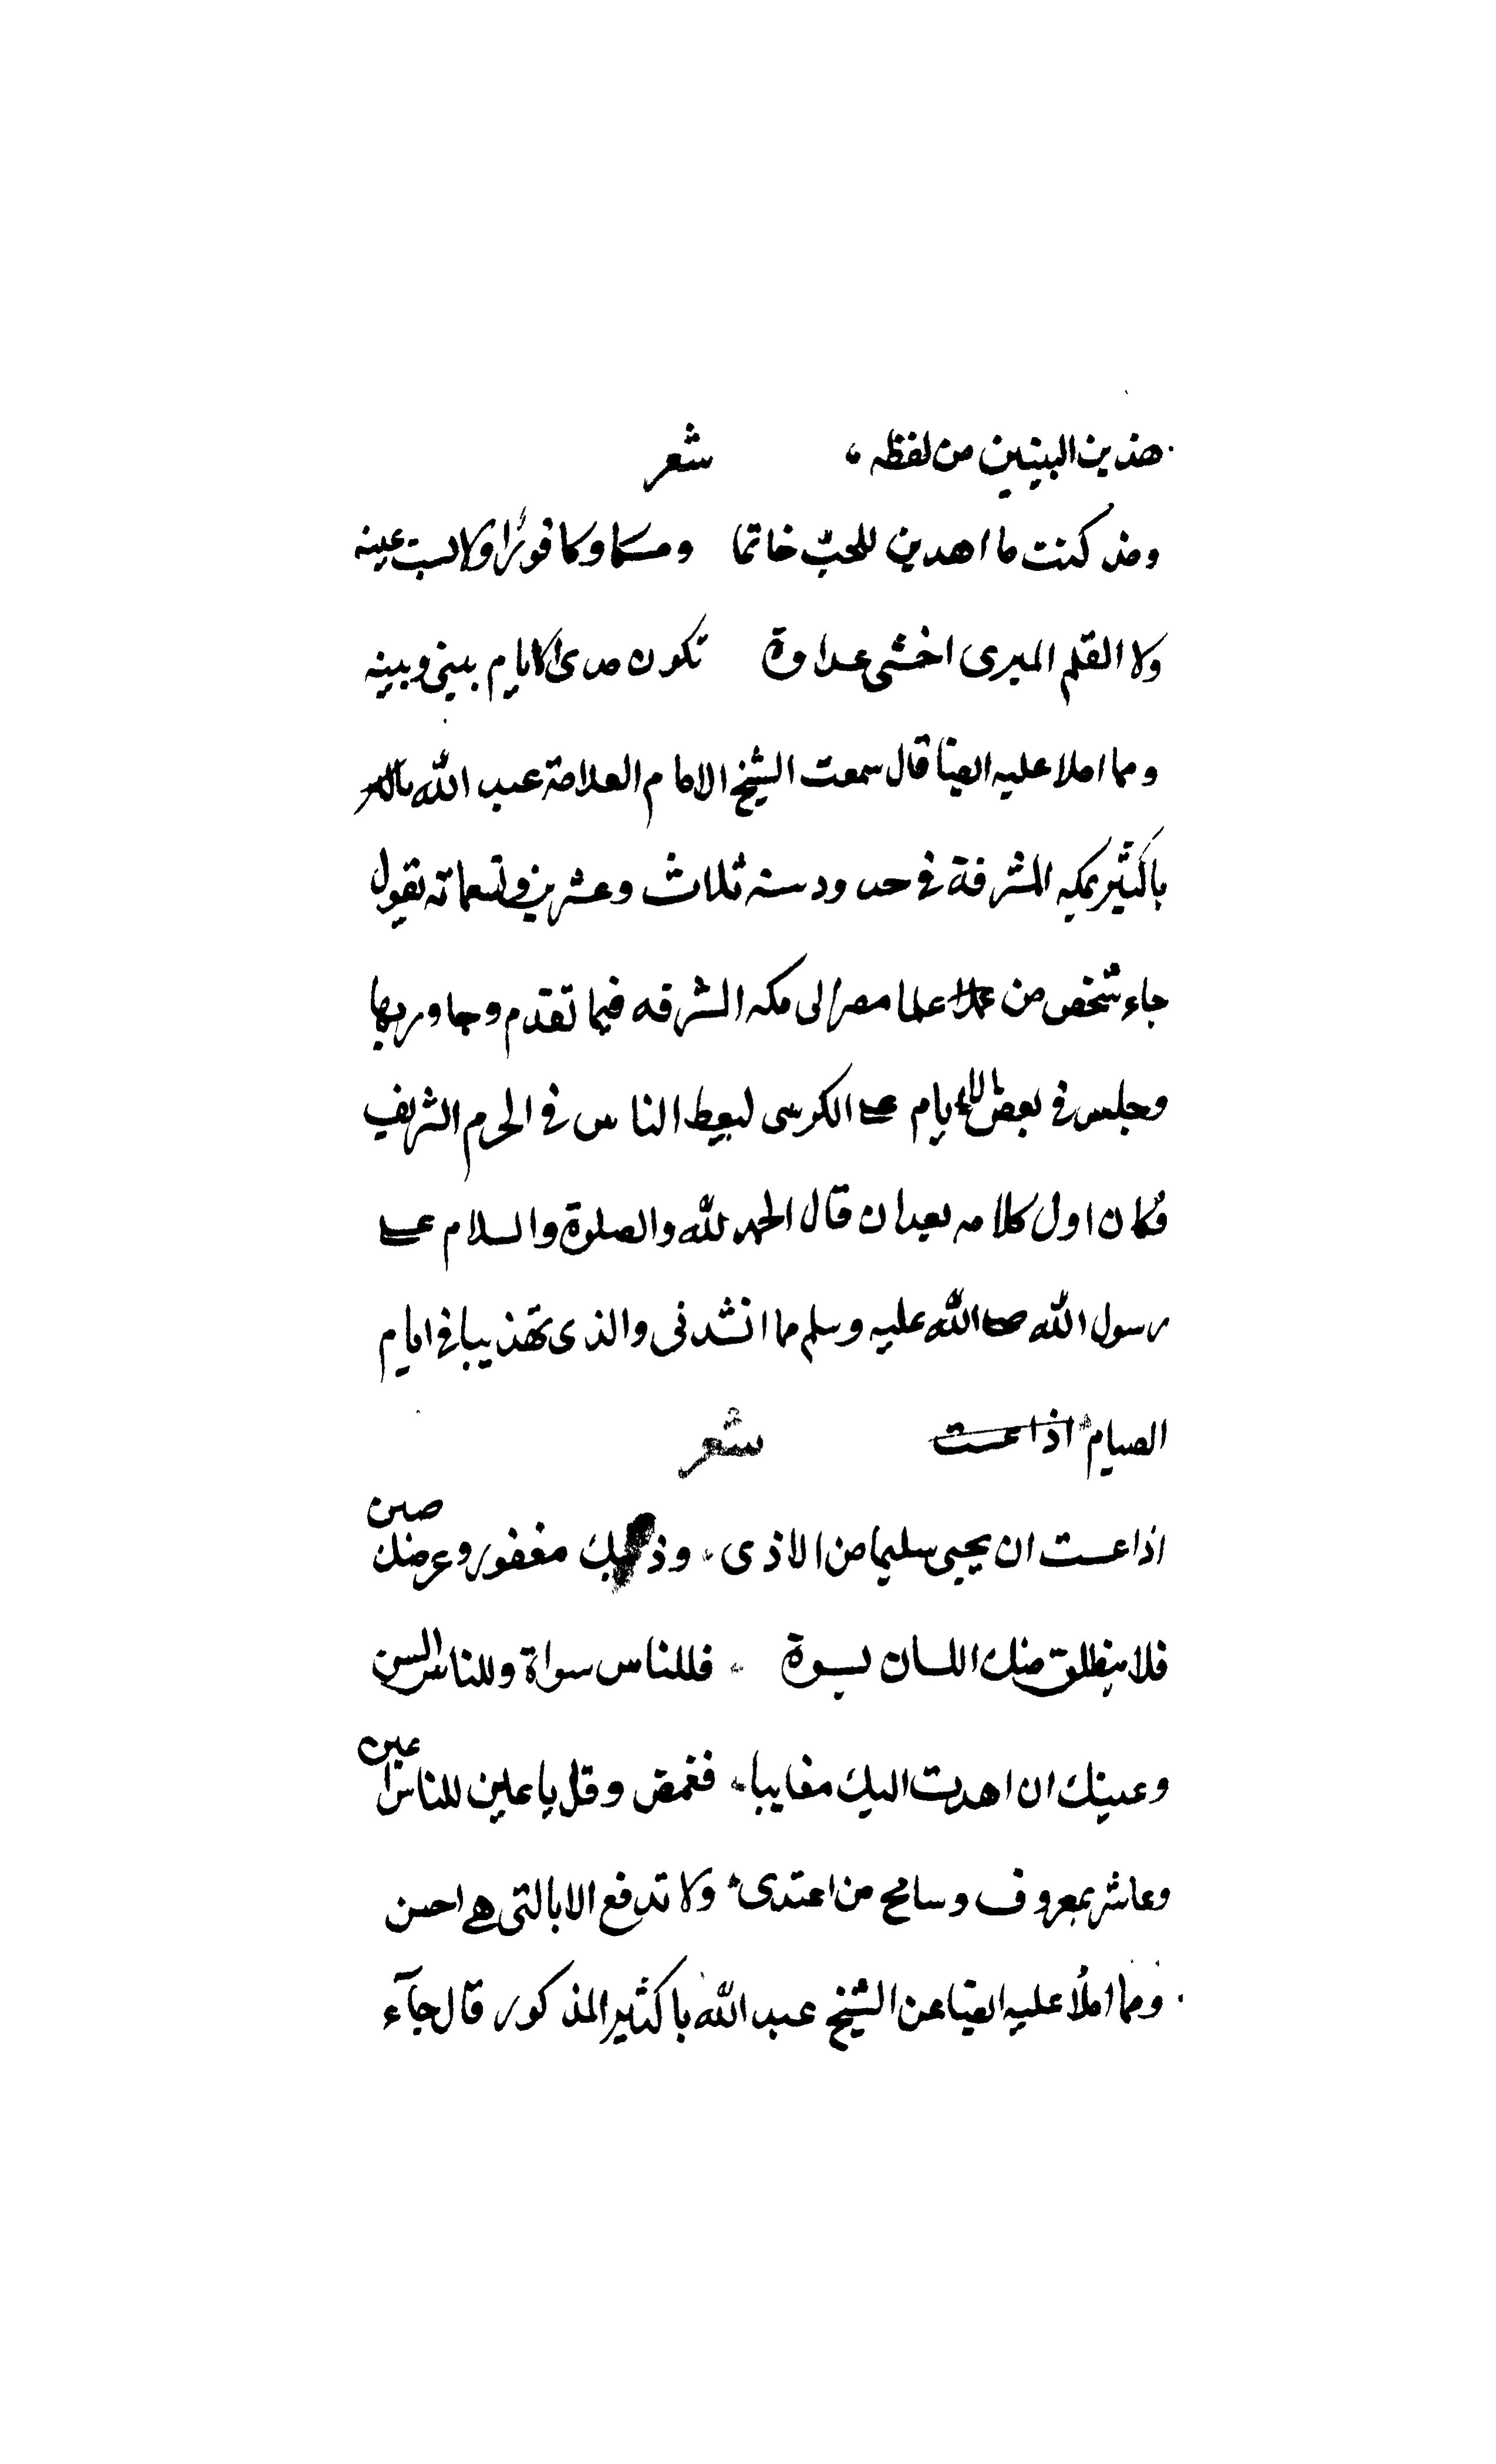 هذين البيتين من لفظه شعر
ومذ كنت ما اهديت للحبّ خاتما ومسكا وكافورا ولا لست عينه
ولا القلم المبرى اخشى عداوة تكون مدى الايام بينى وبينه
ومما املا عليه ايضا قال سمعت الشيخ الامام العلامة عبد الله
باكثير بمكه المشرفة فى حدود سنه ثلاث وعشرين وتسعمائه يقول
جاء شخص من علما مصر الى مكه المشرفه فيما تقدم وجاور بها
وجلس فى بعض الايام على الكرسى ليعظ الناس فى الحرم الشريف
فكان اول كلامه بعد ان قال الحمد لله والصلوة والسلام على
رسول الله صلى الله عليه وسلم مما انشدنى والذى تهذيبا فى ايام
الصيام اذا عست شعر
اذا عست ان يحيى سليما من الاذى وذنبك مغفور وعرضك صين
فلا ينطلق منك اللسان بسوة فللناس سواة وللناس السن
وعينك ان اهدت اليك معايبا فغمض وقل يا عين للناس اعين
وعاشر بمعروف وسامح من اعتدى ولا تدفع الا بالتى هى احسن
ومما املا عليه ايضا عن الشيخ عبد الله باكثير المذكور قال جآء